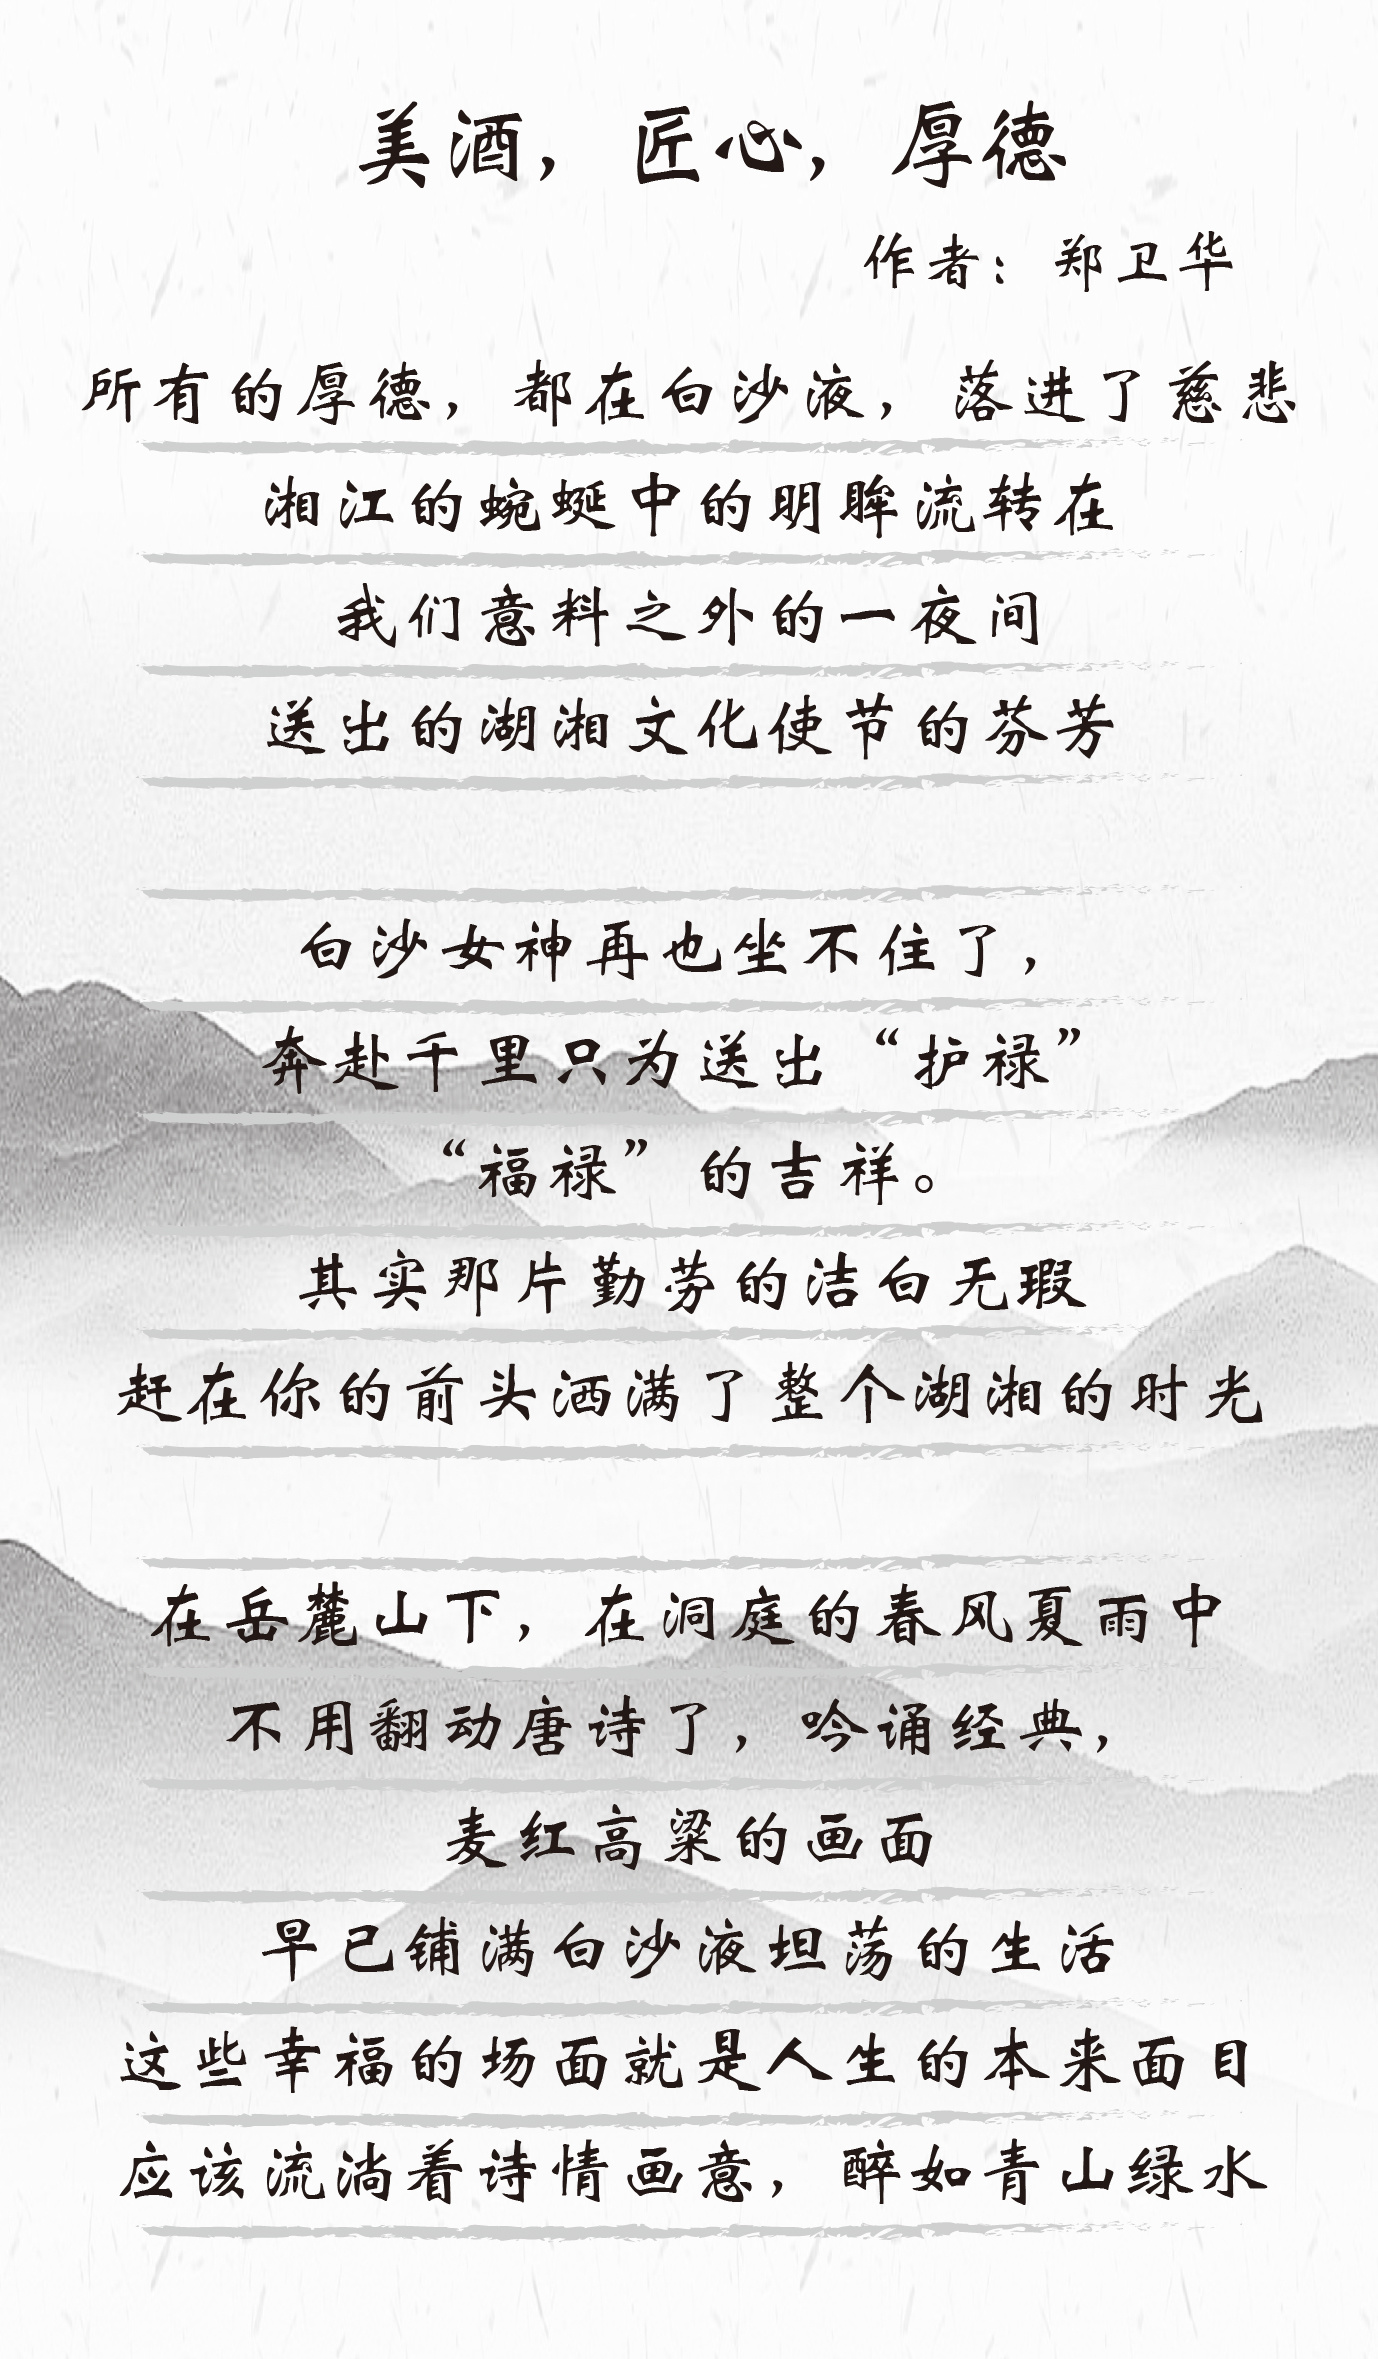 美酒，匠心，厚德
作者：郑卫华
所有的厚德，都在白沙液，落进了慈悲
湘江的蜿蜒中的明眸流转在
我们意料之外的一夜间
送出的湖湘文化使节的芬芳
白沙女神再也坐不住了，
奔赴千里只为送出“护禄”
“福禄”的吉祥。
其实那片勤劳的洁白无瑕
赶在你的前头洒满了整个湖湘的时光
在岳麓山下，在洞庭的春风夏雨中
不用翻动唐诗了，吟诵经典，
麦红高粱的画面
早已铺满白沙液坦荡的生活
这些幸福的场面就是人生的本来面目
应该流淌着诗情画意，醉如青山绿水